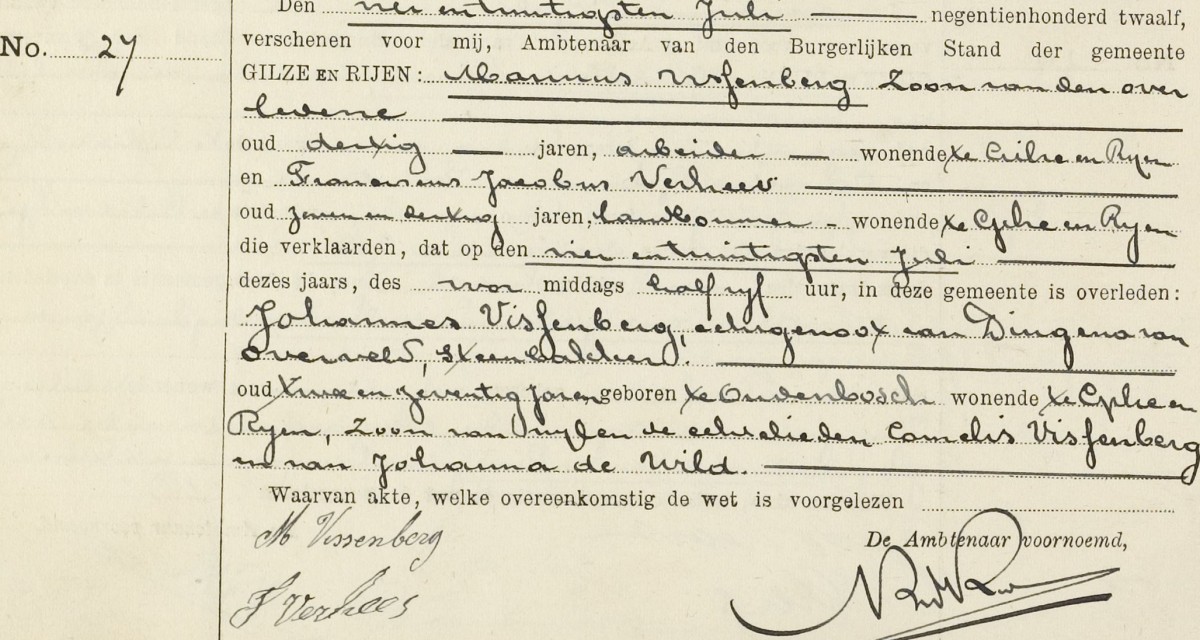 Den vier entwintigsten Juli negentienhonderd twaalf,
No. 27 verschenen voor mij, Ambtenaar van den Burgerlijken Stand der gemeente
GILZE EN RIJEN: Marinus Vissenberg Zoon van den over
ledene
oud dertig jaren, arbeider wonende te Gilze en Ryen
en Franciscus Jacobus Verhees
oud zeven en dertig jaren, landbouwer wonende te Gilze en Ryen
die verklaarden, dat op den vier entwintigsten Juli
dezes jaars, des voor middags half vyf uur, in deze gemeente is overleden:
Johannes Vissenberg, echtgenoot van Dingena van
Overveld,
oud twee en zeventig Jaren geboren te Oudenbosch wonende te Gilze en
Ryen, Zoon van wylen de echtelieden Cornelis Vissenberg
en van Johanna de Wild.
Waarvan akte, welke overeenkomstig de wet is voorgelezen
M Vissenberg
De Ambtenaar voornoemd,
F Verhees